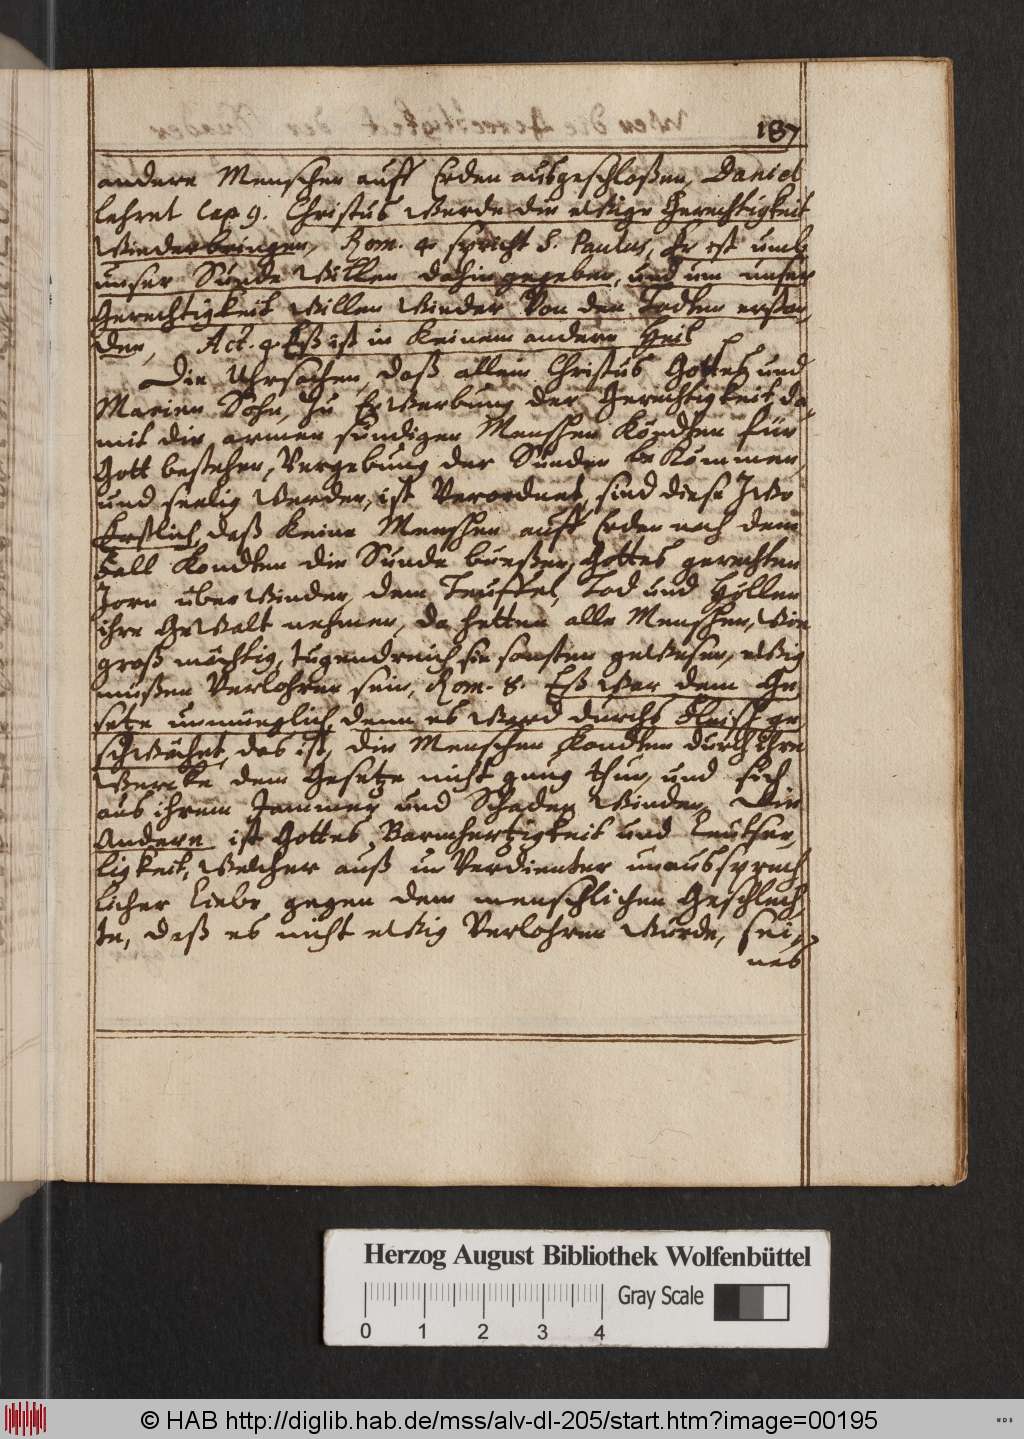 187
andere Menschen auff Erden ausgeschloßen, Daniel
lehret Cap 9. Christus werde die ewige Gerechtigkeit
wiederbringen, Rom. 4. spricht S. Paulus, Er ist umb
unser Sünde willen dahin gegeben, und um unser
Gerechtigkeit willen wieder von den Todten erstan,
den, Act. 4. Eß ist in keinem andern Heil
Die Uhrsachen, daß allein Christus Gottes und
Marien Sohn, zu Erwerbung der Gerechtigkeit, da,
mit die armen sündigen Menschen kondten für
Gott bestehen, Vergebung der Sünden bekommen,
und seelig werden, ist Verordnet, sind diese Zwo
Erstlich, daß keine Menschen auff Erden nach dem
Fall kondten die Sünde bueßen, Gottes gerechten
Zorn überwinden, dem Teuffel, Tod und Hellen
ihre Gewalt nehmen, da hetten alle Menschen, wie
groß mächtig, tugendreich sie sonsten gewesen, ewig
müßen Verlohren sein, Rom. 8. Eß war dem Ge
setze unmüeglich, denn es ward durchs Fleisch ge
schwächet, das ist, die Menschen kondten durch ihre
Wercke dem Gesetze nicht gnug thun, und sich
aus ihrem Jammer und Schaden winden. Die
Andere ist Gottes Barmhertzigkeit und Leutsee,
ligkeit, welcher auß unVerdienter unaussprech
licher Liebe gegen dem menschlichen Geschlech
te, daß es nicht ewig Verlohren würde, sei,
nes
Herzog August Bibliothek Wolfenbüttel
Gray Scale
0 1 2 3 4
© HAB http://diglib.hab.de/mss/alv-dl-205/start.htm?image=00195